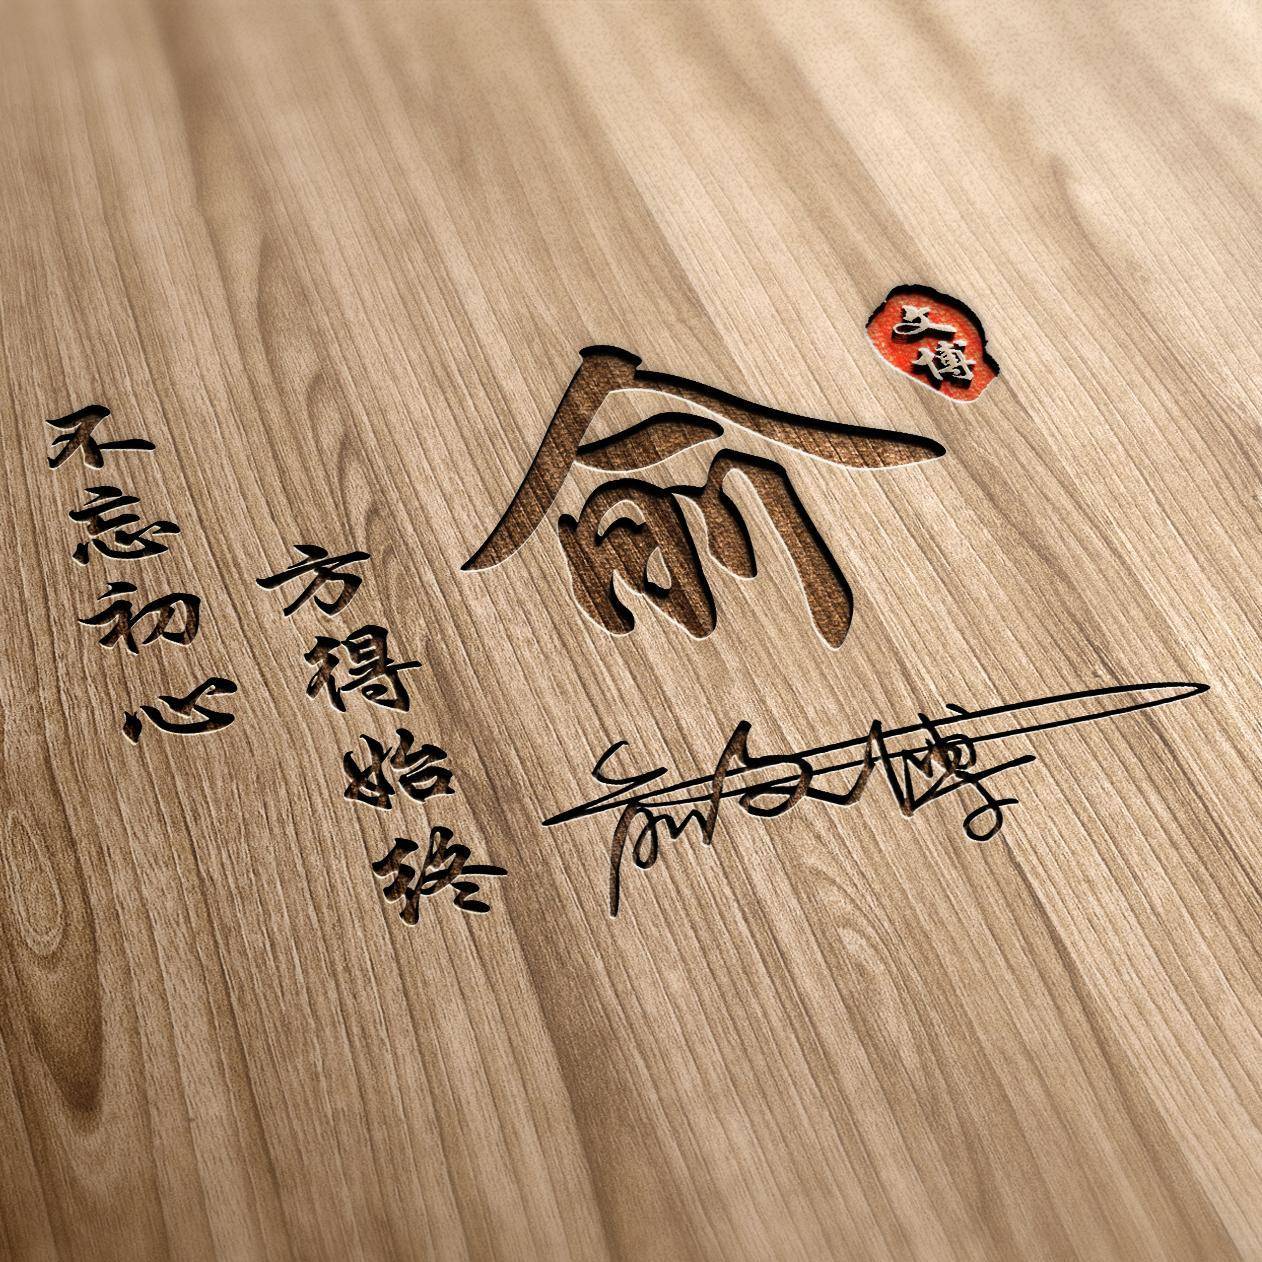 不忘初心
方得始终
俞
文博
俞文博